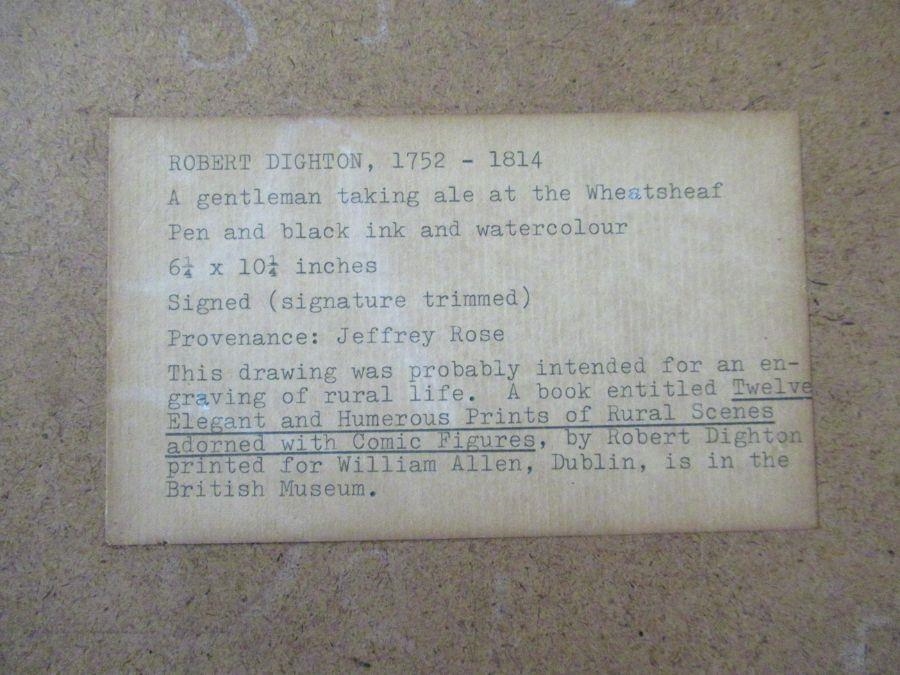 ROBERT DIGHTON, 1752 - 1814
A gentleman taking ale at the Wheatsheaf
Pen and black ink and watercolour
6¼ x 10¼ inches
Signed (signature trimmed)
Provenance: Jeffrey Rose
This drawing was probably intended for an en-
graving of rural life. A book entitled Twelve
Elegant and Humerous Prints of Rural Scenes
adorned with Comic Figures, by Robert Dighton
printed for William Allen, Dublin, is in the
British Museum.